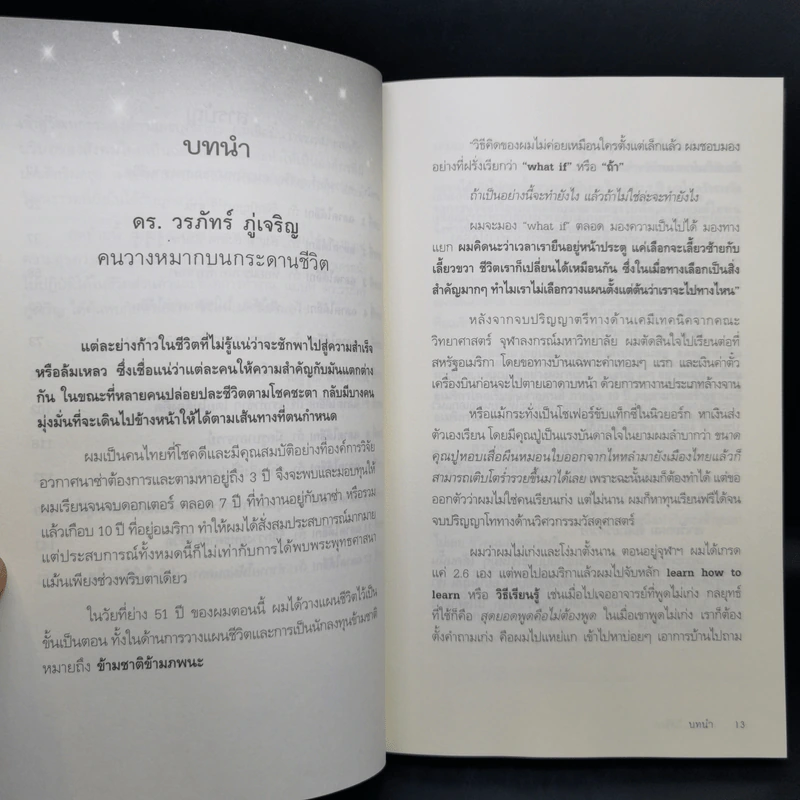 บทนำ
ดร. วรภัทร์ ภู่เจริญ
คนวางหมากบนกระดานชีวิต
แต่ละย่างก้าวในชีวิตที่ไม่รู้แน่ว่าจะชักพาไปสู่ความสำเร็จ
หรือล้มเหลว ซึ่งเชื่อแน่ว่าแต่ละคนให้ความสำคัญกับมันแตกต่าง
กัน ในขณะที่หลายคนปล่อยปละชีวิตตามโชคชะตา กลับมีบางคน
มุ่งมั่นที่จะเดินไปข้างหน้าให้ได้ตามเส้นทางที่ตนกำหนด
ผมเป็นคนไทยที่โชคดีและมีคุณสมบัติอย่างที่องค์การวิจัย
อวกาศนาซ่าต้องการและตามหาอยู่ถึง 3 ปี จึงจะพบและมอบทุนให้
ผมเรียนจนจบดอกเตอร์ ตลอด 7 ปี ที่ทำงานอยู่กับนาซ่า หรือรวม
แล้วเกือบ 10 ปี ที่อยู่อเมริกา ทำให้ผมได้สั่งสมประสบการณ์มากมาย
แต่ประสบการณ์ทั้งหมดนี้ก็ไม่เท่ากับการได้พบพระพุทธศาสนา
แม้นเพียงช่วงพริบตาเดียว
ในวัยที่ย่าง 51 ปี ของผมตอนนี้ ผมได้วางแผนชีวิตไว้เป็น
ขั้นเป็นตอน ทั้งในด้านการวางแผนชีวิตและการเป็นนักลงทุนข้ามชาติ
หมายถึง ข้ามชาติข้ามภพนะ
"วิธีคิดของผมไม่ค่อยเหมือนใครตั้งแต่เล็กแล้ว ผมชอบมอง
อย่างที่ฝรั่งเรียกว่า "what if" หรือ "ถ้า"
ถ้าเป็นอย่างนี้จะทำยังไง แล้วถ้าไม่ใช่ล่ะจะทำยังไง
ผมจะมอง "what if" ตลอด มองความเป็นไปได้ มองทาง
แยก ผมคิดนะว่าเวลาเรายืนอยู่หน้าประตู แค่เลือกจะเลี้ยวซ้ายกับ
เลี้ยวขวา ชีวิตเราก็เปลี่ยนได้เหมือนกัน ซึ่งในเมื่อทางเลือกเป็นสิ่ง
สำคัญมากๆ ทำไมเราไม่เลือกวางแผนตั้งแต่ต้นว่าเราจะไปทางไหน"
หลังจากจบปริญญาตรีทางด้านเคมีเทคนิคจากคณะ
วิทยาศาสตร์ จุฬาลงกรณ์มหาวิทยาลัย ผมตัดสินใจไปเรียนต่อที่
สหรัฐอเมริกา โดยขอทางบ้านเฉพาะค่าเทอมๆ แรก และเงินค่าตั๋ว
เครื่องบินก่อนจะไปตายเอาดาบหน้า ด้วยการหางานประเภทล้างจาน
หรือแม้กระทั่งเป็นโชเฟอร์ขับแท็กซี่ในนิวยอร์ก หาเงินส่ง
ตัวเองเรียน โดยมีคุณปู่เป็นแรงบันดาลใจในยามผมลำบากว่า ขนาด
คุณปู่หอบเสื่อผืนหมอนใบออกจากไหหลำมายังเมืองไทยแล้วก็
สามารถเติบโตร่ำรวยขึ้นมาได้เลย เพราะฉะนั้นผมก็ต้องทำได้ แต่ขอ
ออกตัวว่าผมไม่ใช่คนเรียนเก่ง แต่ไม่นาน ผมก็หาทุนเรียนฟรีได้จน
จบปริญญาโททางด้านวิศวกรรมวัสดุศาสตร์
ผมว่าผมไม่เก่งและโง่มาตั้งนาน ตอนอยู่จุฬาฯ ผมได้เกรด
แค่ 2.6 เอง แต่พอไปอเมริกาแล้วผมไปจับหลัก learn how to
learn หรือ วิธีเรียนรู้ เช่นเมื่อไปเจออาจารย์ที่พูดไม่เก่ง กลยุทธ์
ที่ใช้ก็คือ สุดยอดพูดคือไม่ต้องพูด ในเมื่อเขาพูดไม่เก่ง เราก็ต้อง
ตั้งคำถามเก่ง คือผมไปแหย่แก เข้าไปหาบ่อยๆ เอาการบ้านไปถาม
บทนำ 13